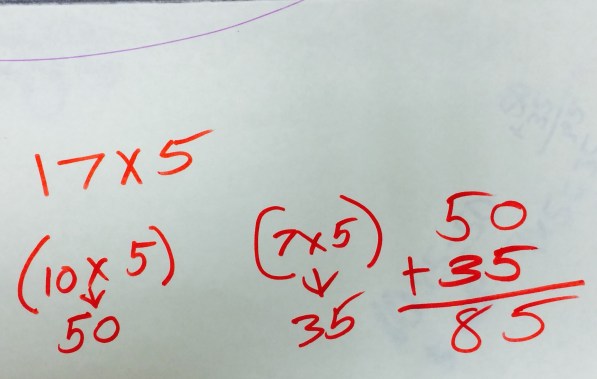 17 x 5
(10 x 5)
↓
50
(7x5)
↓
35
50
+ 35
85